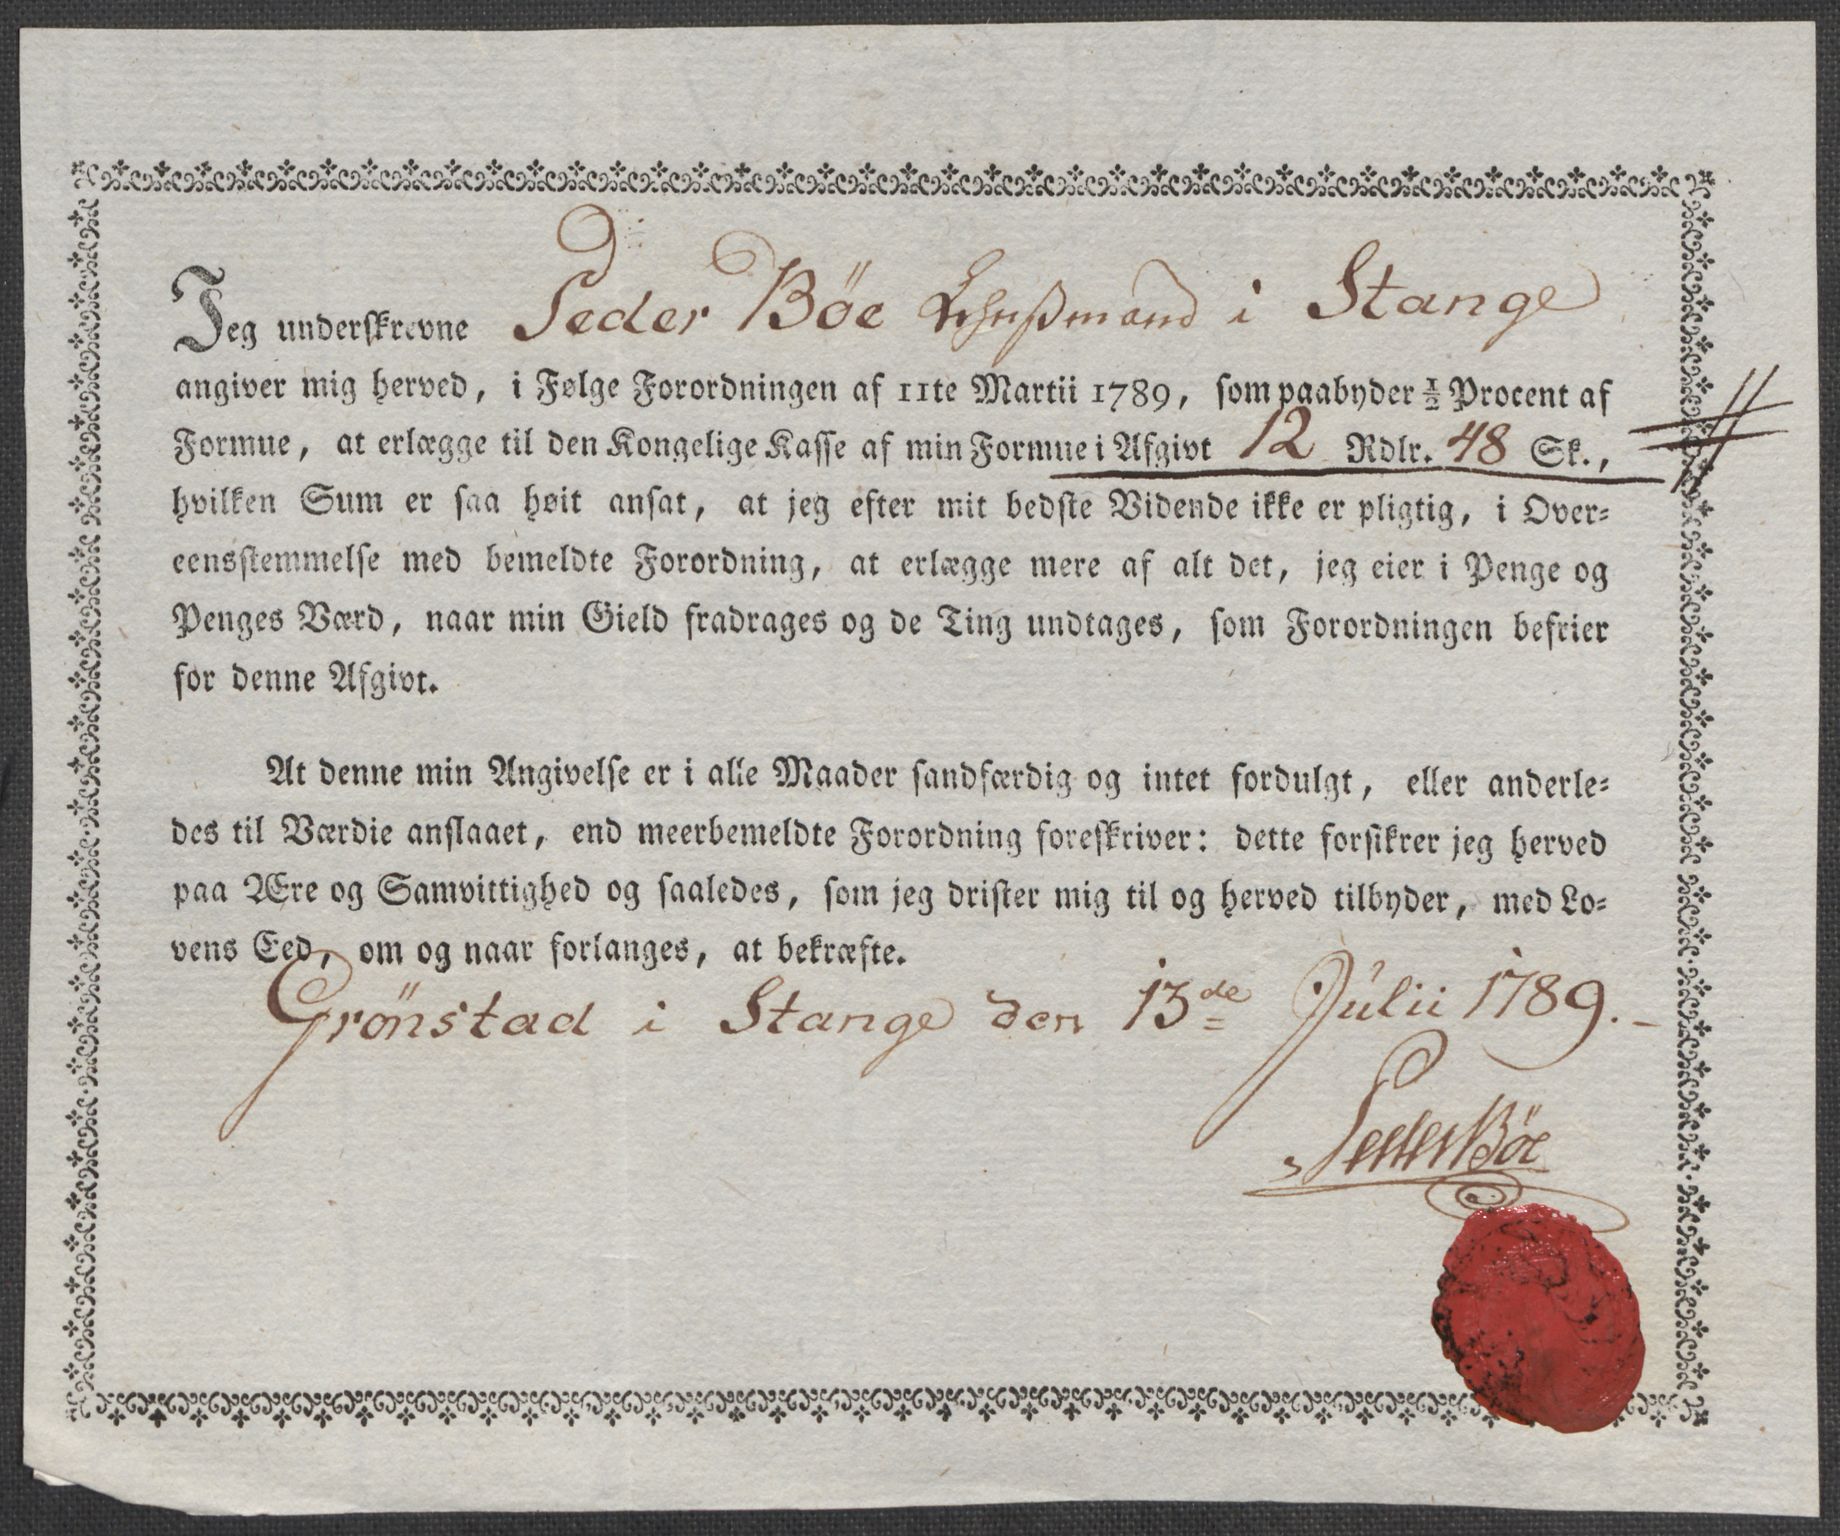 Jeg underskrevne Peder Böe Lehnßmand i Stange
angiver mig herved, i Følge Forordningen af 11te Martii 1789, som paabyder ½ Procent af
Formue, at erlægge til den Kongelige Kasse af min Formue i Afgivt 12 Rdlr. 48 Sk.,
hvilken Sum er saa høit ansat, at jeg efter mit bedste Vidende ikke er pligtig, i Over-
eensstemmelse med bemeldte Forordning, at erlægge mere af alt det, jeg eier i Penge og
Penges Værd, naar min Gield fradrages og de Ting undtages, som Forordningen befrier
for denne Afgivt.
At denne min Angivelse er i alle Maader sandfærdig og intet fordulgt, eller anderle-
des til Værdie anslaaet, end meerbemeldte Forordning foreskriver: dette forsikrer jeg herved
paa Ære og Samvittighed og saaledes, som jeg drister mig til og herved tilbyder, med Lo-
vens Eed, om og naar forlanges, at bekræfte.
Grönstad i Stange den 13de Julii 1789.
Peder Böe